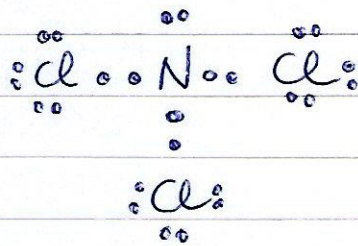 Cl N Cl
Cl